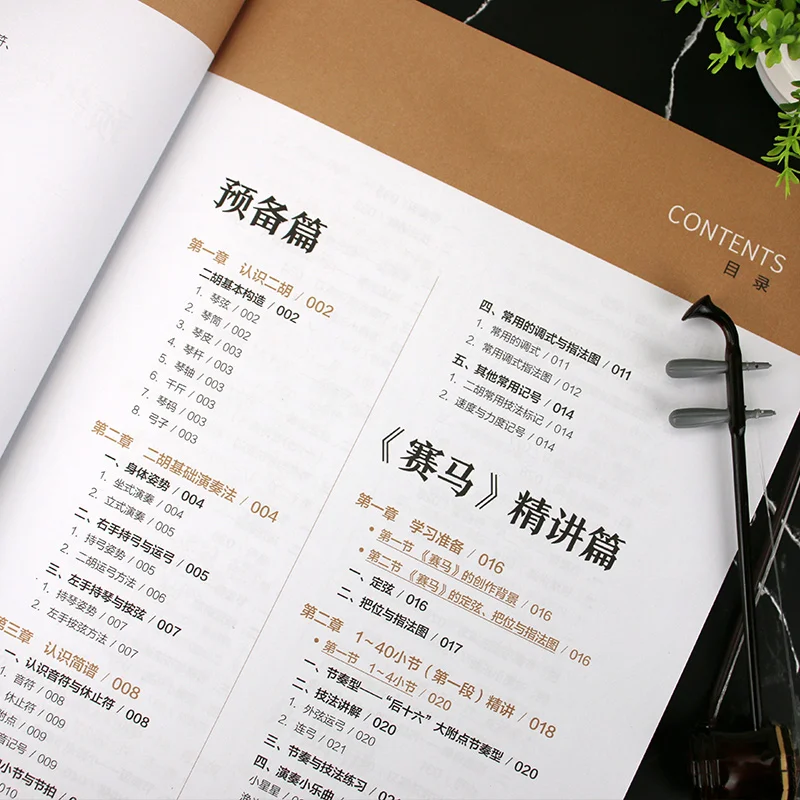 符、
CONTENTS
目 录
预备篇
第一章 认识二胡 / 002
二胡基本构造 / 002
1. 琴弦 / 002
2. 琴筒 / 002
3. 琴皮 / 003
4. 琴杆 / 003
5. 琴轴 / 003
6. 千斤 / 003
7. 琴码 / 003
8. 弓子 / 003
第二章 二胡基础演奏法 / 004
一、身体姿势 / 004
1. 坐式演奏 / 004
2. 立式演奏 / 005
二、右手持弓与运弓 / 005
1. 持弓姿势 / 005
2. 二胡运弓方法 / 006
三、左手持琴与按弦 / 007
1. 持琴姿势 / 007
2. 左手按弦方法 / 007
第三章 认识简谱 / 008
一、认识音符与休止符 / 008
1. 音符 / 008
休止符 / 008
附点 / 009
音记号 / 009
小节与节拍 / 009
/ 010
四、常用的调式与指法图 / 011
1. 常用的调式 / 011
2. 常用调式指法图 / 012
五、其他常用记号 / 014
1. 二胡常用技法标记 / 014
2. 速度与力度记号 / 014
《赛马》精讲篇
第一章 学习准备 / 016
• 第一节 《赛马》的创作背景 / 016
• 第二节 《赛马》的定弦、把位与指法图 / 016
一、定弦 / 016
二、把位与指法图 / 017
第二章 1~40小节（第一段）精讲 / 018
• 第一节 1~4小节 / 020
一、节奏型——“后十六”大附点节奏型 / 020
二、技法讲解 / 020
1. 外弦运弓 / 020
2. 连弓 / 021
三、节奏与技法练习 /
四、演奏小乐曲
小星星